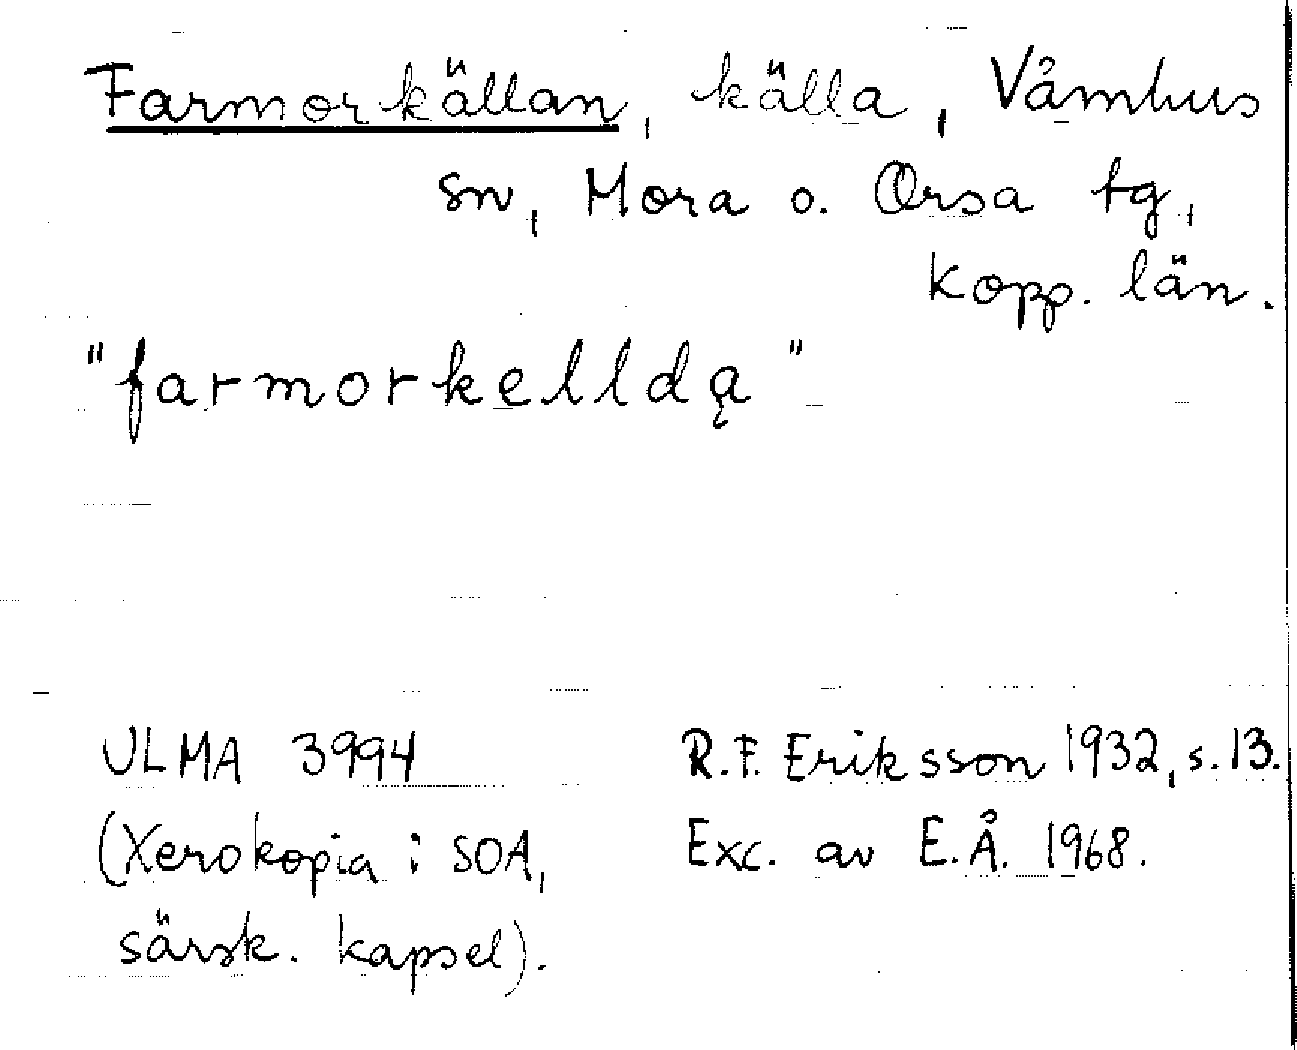 Farmorkällan, källa, Våmhus
sn, Mora o. Orsa tg,
Kopp. län.
"farmorkelldą"
ULMA 3994
(Xerokopia i SOA,
särsk. kapsel).
R.F. Eriksson 1932, s. 13.
Exc. av E.Å. 1968.